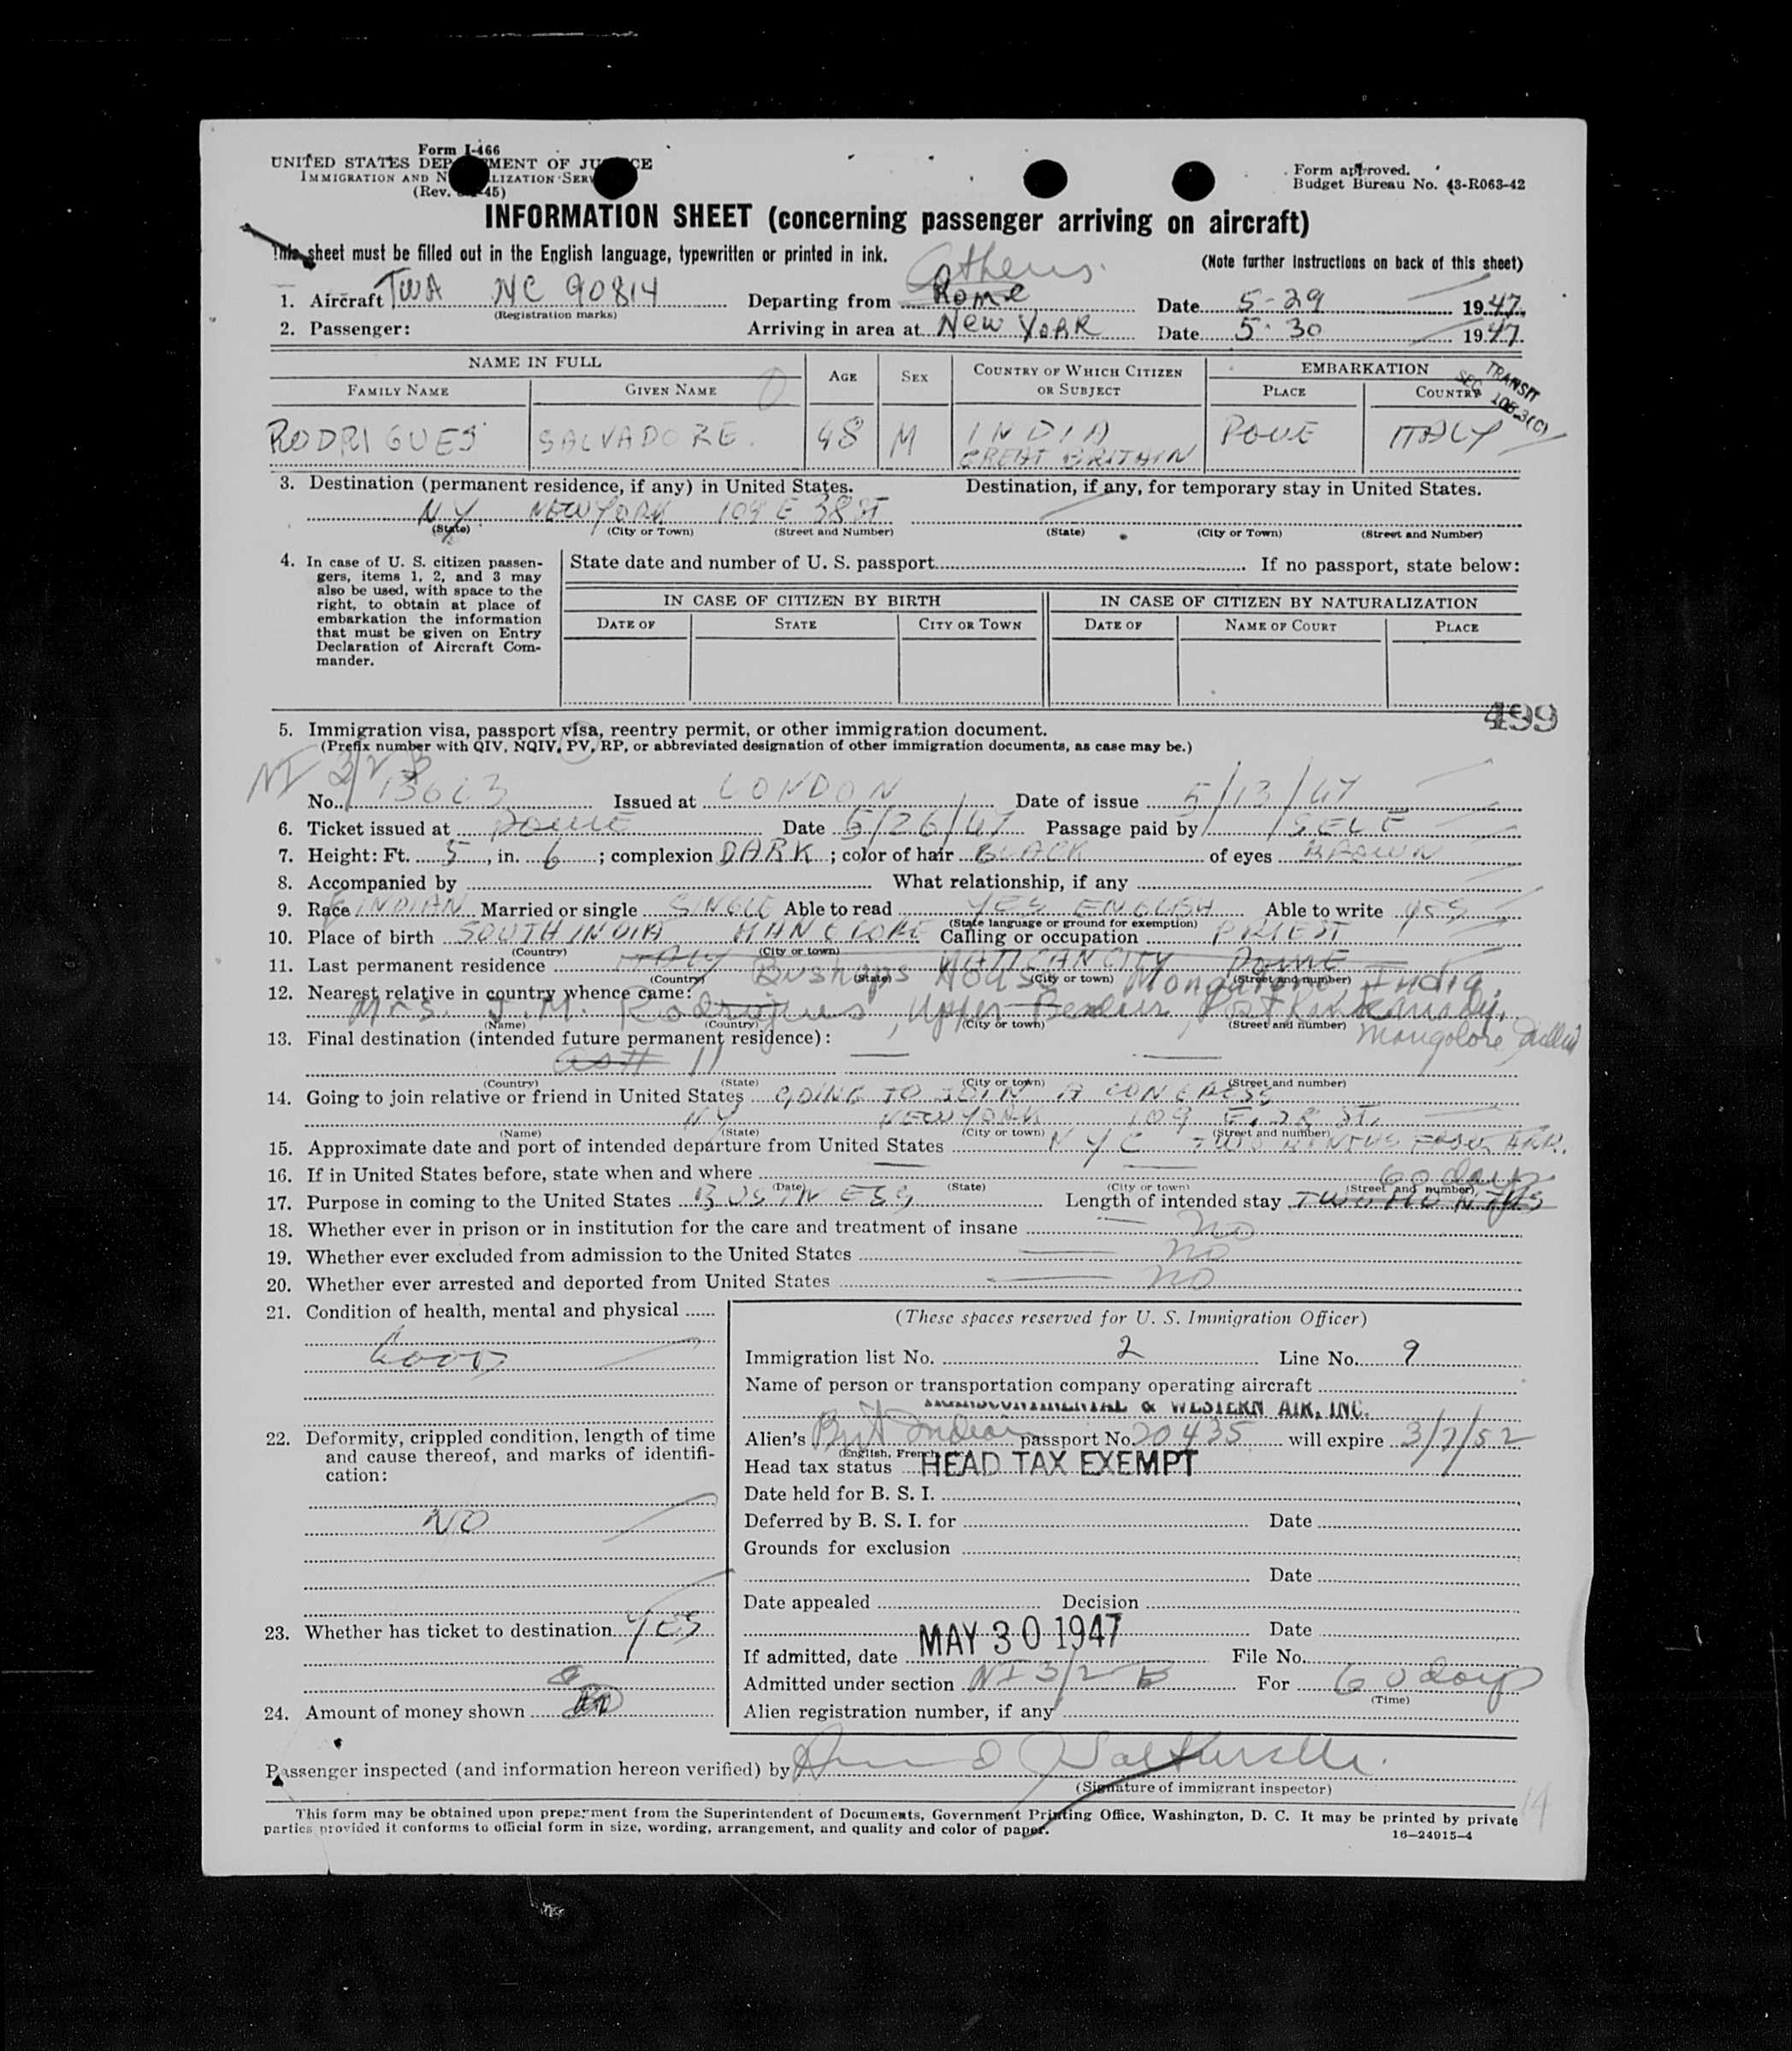 Form I-466
UNITED STATES DEP MENT OF JU CE
IMMIGRATION AND N LIZATION SERV
(Rev. 45)
Form approved.
Budget Bureau No. 43-R063-42
INFORMATION SHEET (concerning passenger arriving on aircraft)
This sheet must be filled out in the English language, typewritten or printed in ink.
(Note further instructions on back of this sheet)
Athens.
1. Aircraft TWA NC 90814 Departing from Rome Date 5-29 1947
(Registration marks)
2. Passenger: Arriving in area at New York Date 5-30 1947
NAME IN FULL AGE SEX COUNTRY OF WHICH CITIZEN OR SUBJECT EMBARKATION
FAMILY NAME GIVEN NAME PLACE COUNTRY
TRANSIT
SEC 105.3(C)
RODRIGUES SALVADORE. 48 M INDIA ROME ITALY
GREAT BRITAIN
3. Destination (permanent residence, if any) in United States. Destination, if any, for temporary stay in United States.
N.Y. NEW YORK 109 E 38 ST
(State) (City or Town) (Street and Number) (State) (City or Town) (Street and Number)
4. In case of U. S. citizen passengers, items 1, 2, and 3 may also be used, with space to the right, to obtain at place of embarkation the information that must be given on Entry Declaration of Aircraft Commander.
State date and number of U. S. passport If no passport, state below:
IN CASE OF CITIZEN BY BIRTH IN CASE OF CITIZEN BY NATURALIZATION
DATE OF STATE CITY OR TOWN DATE OF NAME OF COURT PLACE
499
5. Immigration visa, passport visa, reentry permit, or other immigration document.
(Prefix number with QIV, NQIV, PV, RP, or abbreviated designation of other immigration documents, as case may be.)
NI 3/2 B
No. Issued at LONDON Date of issue 5/13/47
6. Ticket issued at ROME Date 5/26/47 Passage paid by SELF
7. Height: Ft. 5, in. 6; complexion DARK; color of hair BLACK of eyes BROWN
8. Accompanied by What relationship, if any
9. Race INDIAN Married or single SINGLE Able to read YES ENGLISH Able to write YES
(State language or ground for exemption)
10. Place of birth SOUTH INDIA MANGLORE Calling or occupation PRIEST
(Country) (City or town)
11. Last permanent residence ITALY VATICAN CITY ROME
Bushops House Mongalore, India.
(Country) (State) (City or town) (Street and number)
12. Nearest relative in country whence came:
Mrs. J.M. Rodrigues, Upper
Mangalore
(Name) (Country) (City or town) (Street and number)
13. Final destination (intended future permanent residence):
as # 11
(Country) (State) (City or town) (Street and number)
14. Going to join relative or friend in United States GOING TO JOIN A CONGRESS
NY NEW YORK 109 E. 38 ST.
(Name) (State) (City or town) (Street and number)
15. Approximate date and port of intended departure from United States NYC TWO MONTHS FROM ARR.
16. If in United States before, state when and where
(Date) (State) (City or town) (Street and number)
60 days
17. Purpose in coming to the United States BUSINESS Length of intended stay TWO MONTHS
18. Whether ever in prison or in institution for the care and treatment of insane no
19. Whether ever excluded from admission to the United States no
20. Whether ever arrested and deported from United States no
21. Condition of health, mental and physical
GOOD
22. Deformity, crippled condition, length of time and cause thereof, and marks of identification:
NO
23. Whether has ticket to destination YES
24. Amount of money shown
(These spaces reserved for U. S. Immigration Officer)
Immigration list No. 2 Line No. 9
Name of person or transportation company operating aircraft
TRANSCONTINENTAL & WESTERN AIR, INC.
Alien's Brit Indian passport No. 20435 will expire 3/7/52
(English, French
Head tax status HEAD TAX EXEMPT
Date held for B. S. I.
Deferred by B. S. I. for Date
Grounds for exclusion
Date
Date appealed Decision
Date
If admitted, date MAY 30 1947 File No.
Admitted under section NI 3/2 B For 60 days
(Time)
Alien registration number, if any
Passenger inspected (and information hereon verified) by
(Signature of immigrant inspector)
This form may be obtained upon prepayment from the Superintendent of Documents, Government Printing Office, Washington, D. C. It may be printed by private
parties provided it conforms to official form in size, wording, arrangement, and quality and color of paper.
16—24915-4
14